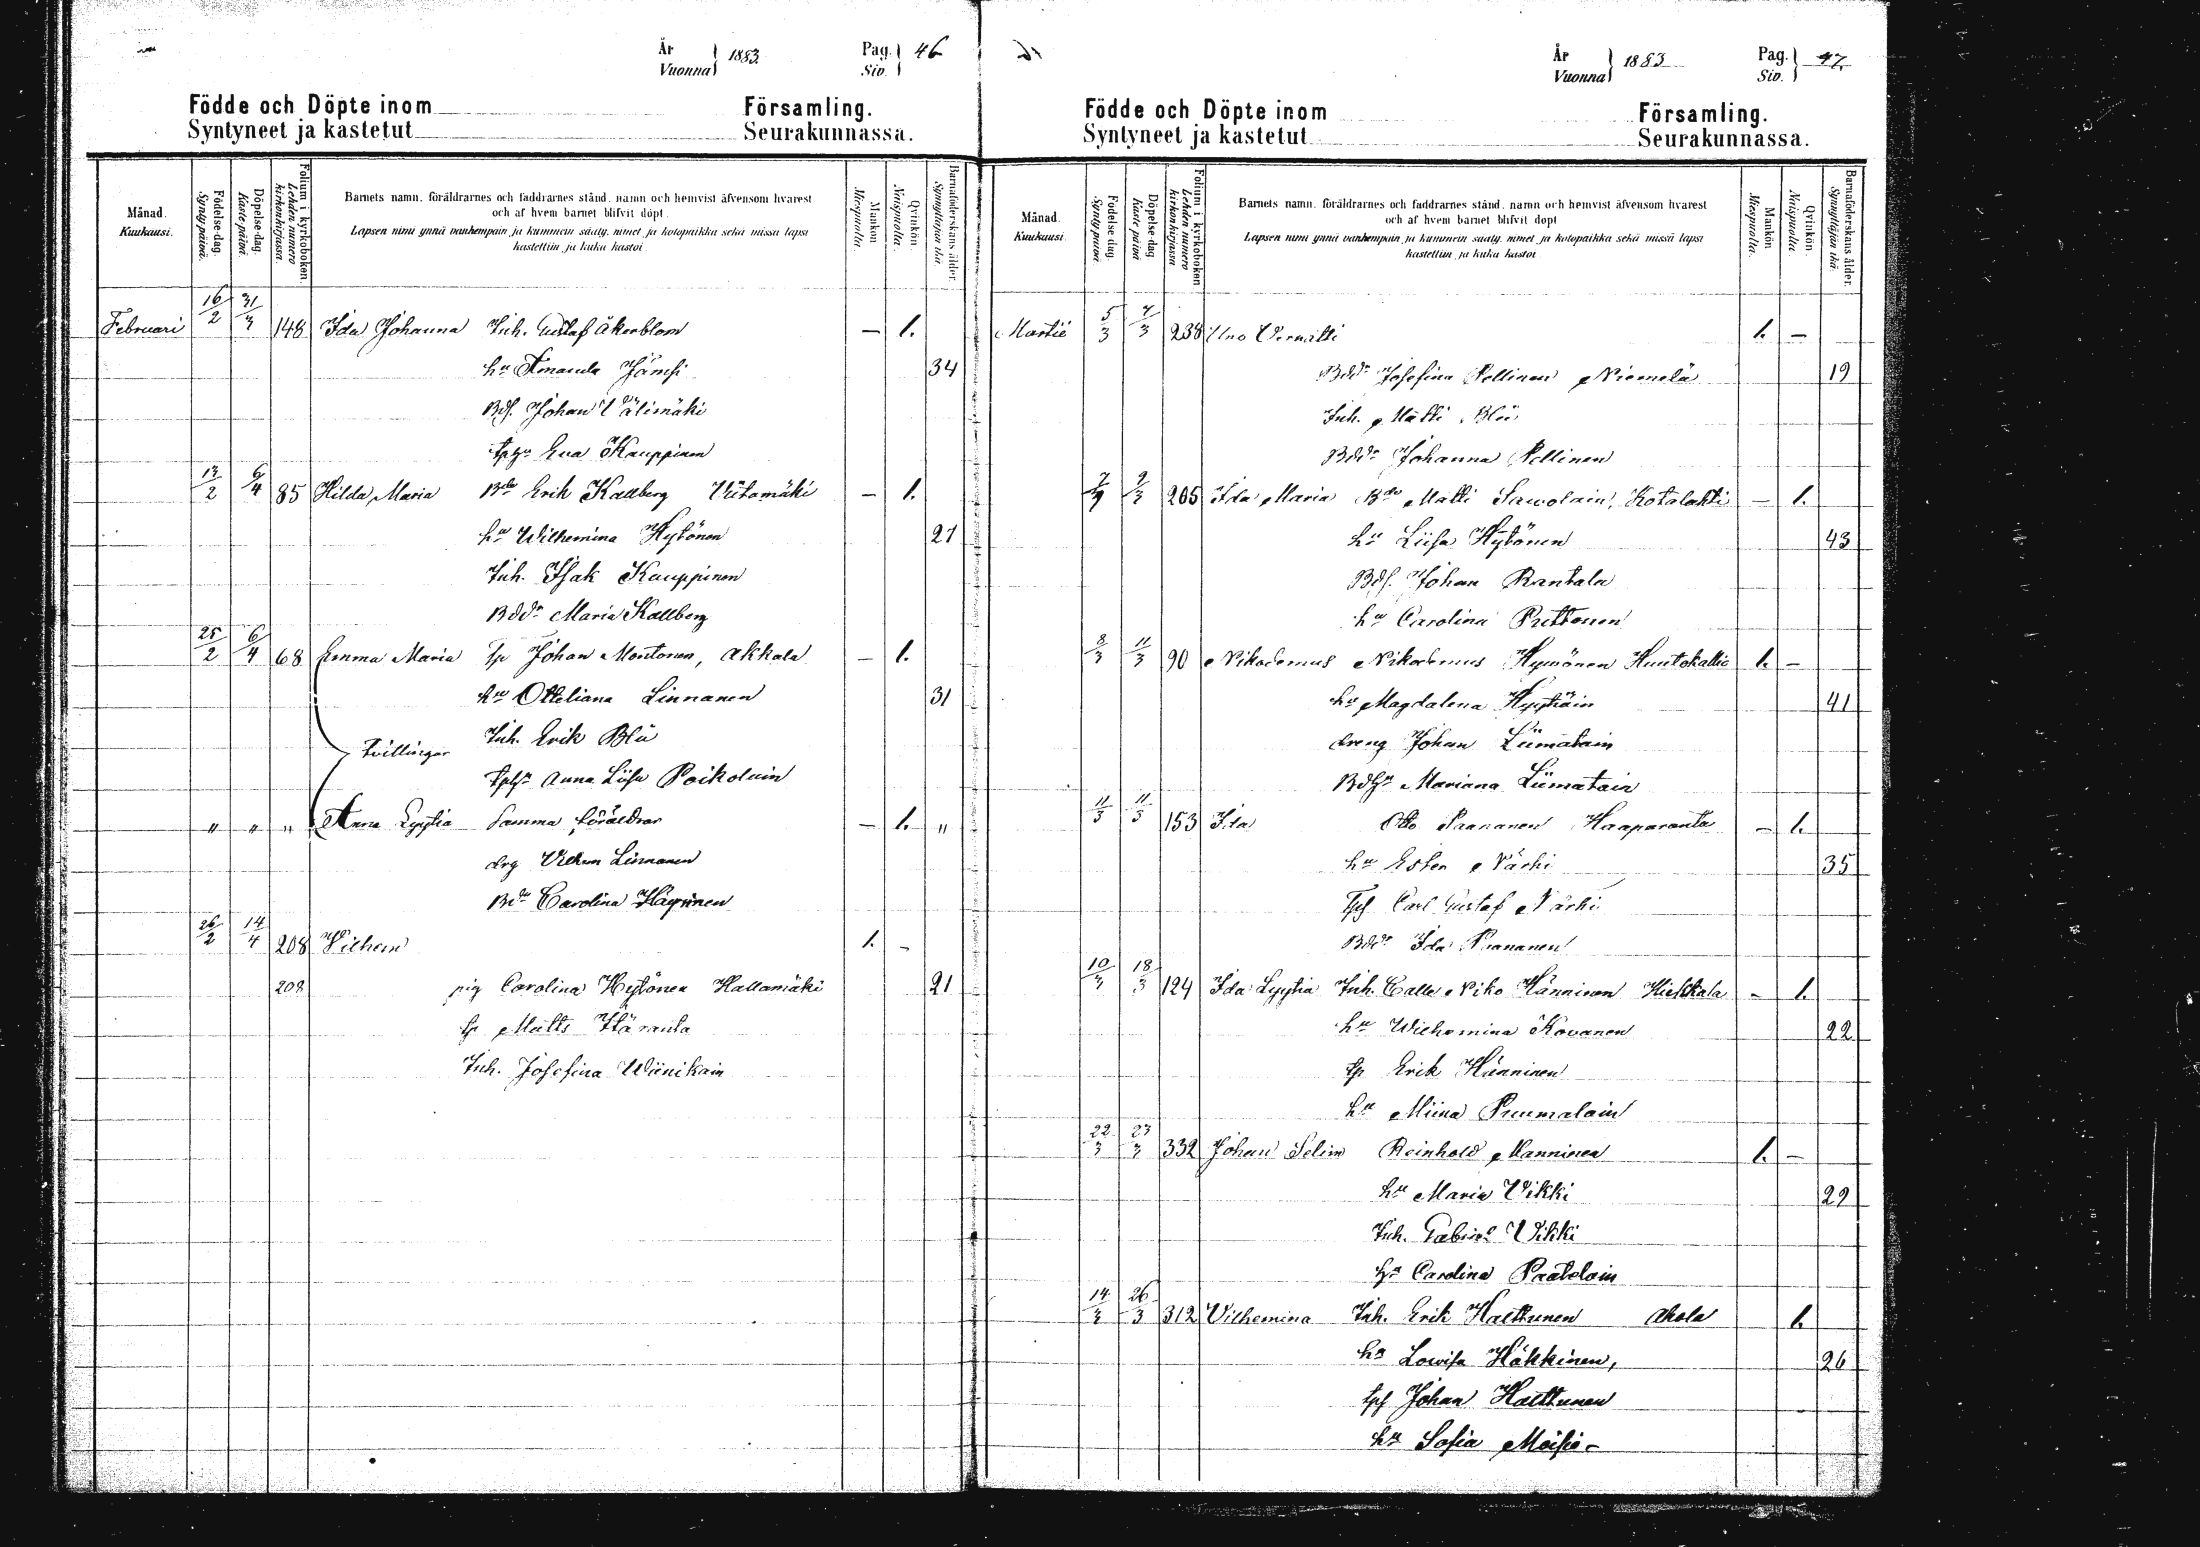 År
Vuonna } 1883.
Pag.
Siv. } 46
Födde och Döpte inom Församling.
Syntyneet ja kastetut Seurakunnassa.
Månad.
Kuukausi.
Födelse-dag.
Synty päivä.
Döpelse-dag.
Kaste päivä.
Folium i kyrkoboken.
Lehden numero kirkonkirjassa
Barnets namn, föräldrarnes och faddrarnes stånd, namn och hemvist äfvensom hvarest
och af hvem barnet blifvit döpt.
Lapsen nimi ynnä vanhempain ja kummein sääty, nimet ja kotopaikka sekä missä lapsi
kastettiin ja kuka kastoi.
Mankön.
Miespuolta.
Qvinkön.
Naispuolta.
Barnaföderskans ålder.
Synnyttäjän ikä.
Februari 16/2 31/3 148 Ida Johanna Inh. Gustaf Åkerblom — 1.
hu Amanda Jämsi 34
Bds. Johan Välimäki
Eva Kauppinen
13/2 6/4 85 Hilda Maria Bde Erik Kallberg Viitamäki — 1.
hu Wilhemina Hytönen 21
Inh. Isak Kauppinen
Bddr Maria Kallberg
25/2 6/4 68 Emma Maria Tp Johan Montonen, Akkala — 1.
hu Otteliana Linnanen 31
Inh. Erik Blä
Tvillingar
Anna Liisa Poikolain
" " " Anna Lyytia Samma föräldrar — 1. "
drg Vilhem Linnanen
Carolina Häyrinen
26/2 14/4 208 Vilhem 1. -
208 pig Carolina Hytönen Hallamäki 21
tp Matts Itäranta
Inh. Josefina Wiinikain
År
Vuonna } 1883
Pag.
Siv. } 47.
Födde och Döpte inom Församling.
Syntyneet ja kastetut Seurakunnassa.
Månad.
Kuukausi.
Födelse dag.
Synty päivä.
Döpelse-dag
Kaste päivä
Folium i kyrkoboken
Lehden numero kirkonkirjassa
Barnets namn, föräldrarnes och faddrarnes stånd, namn och hemvist äfvensom hvarest
och af hvem barnet blifvit döpt
Lapsen nimi ynnä vanhempain ja kummein sääty, nimet ja kotopaikka sekä missä lapsi
kastettiin ja kuka kastoi
Mankön
Miespuolta.
Qvinkön.
Naispuolta
Barnaföderskans ålder.
Synnyttäjän ikä.
Martii 5/3 7/3 238 Uno Vernätti 1. —
Bddr Josefina Pellinen Niemelä 19
Inh. Matti Blä
Bddr Johanna Pellinen
7/3 9/3 205 Ida Maria Bde Matti Sawolain, Kotalahti — 1.
hu Liisa Hytönen 43
Bds. Johan Rantala
hu Carolina Puttonen
8/3 11/3 90 Nikodemus Nikodemus Hymönen Huutokallio 1. —
hu Magdalena Hyytiäin 41
dreng Johan Liimatain
Mariana Liimatain
11/3 11/3 153 Ida Otto Paananen Haaparanta — 1.
hu Ester Närhi 35
Carl Gustaf Närhi
Bddr Ida Paananen
10/3 18/3 124 Ida Lyytia Inh. Calle Niko Hänninen Hiekkala - 1.
hu Wilhemina Kovanen 22
tp Erik Hänninen
hu Miina Puumalain
22/3 23/3 332 Johan Selim Reinhold Manninen 1. —
hu Maria Vikki 29
Inh. Gabriel Vikki
hu Carolina Paatelain
14/3 26/3 312 Vilhemina Inh. Erik Halttunen Ahola 1.
hu Lowisa Häkkinen, 26
tps Johan Halttunen
hu Sofia Moisio -